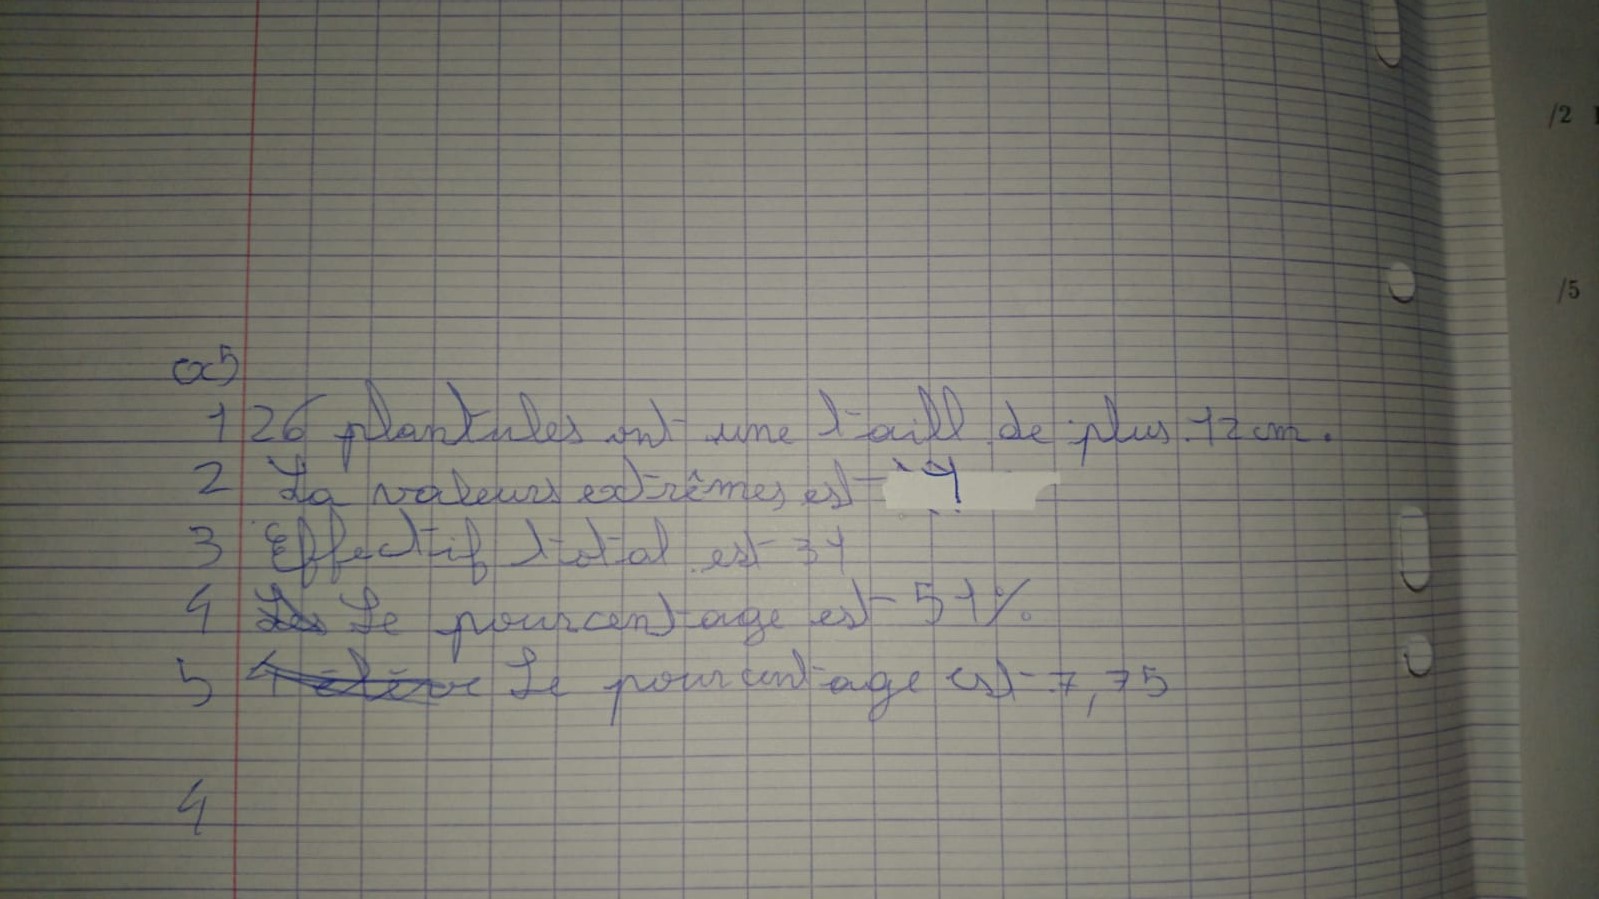 /2
/5
ex5
1 26 plantules ont une taill de plus 12 cm.
2 La valeurs extrêmes est 4
3 Effectif total est 31
4 Les Le pourcentage est 51%
5 élève Le pourcentage est 7,75
4